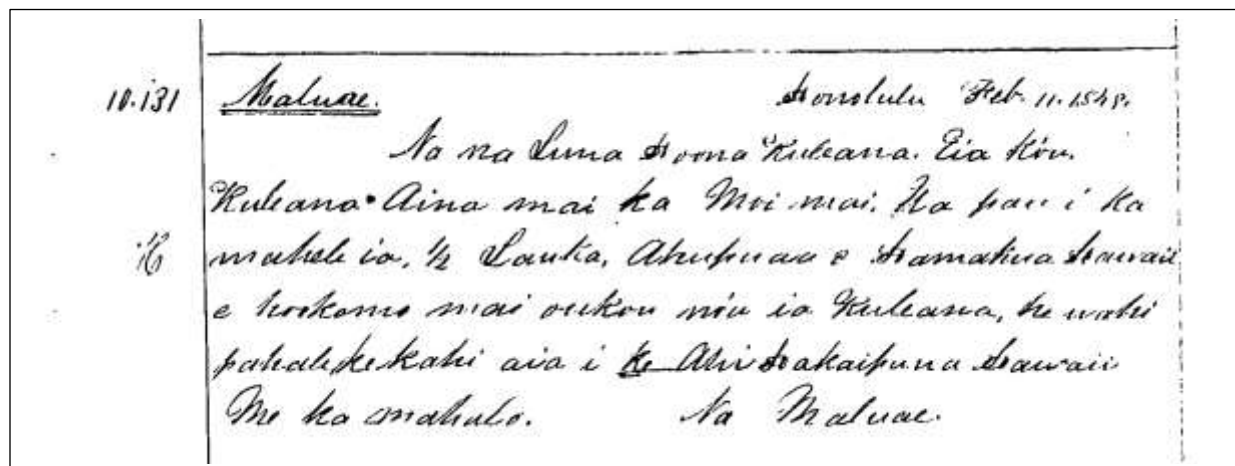 10.131 Maluae. Honolulu Feb. 11. 1848.
Na na Luna Hoona Kuleana. Eia kóu
Kuleana Aina mai ka Moi mai. Ua pau i ka
mahele ia, 1/2 Lauka, Ahupuaa o Hamakua Hawaii
e hookomo mai oukou nóu ia Kuleana, he wahi
pahale kekahi aia i ke Ahi Hakaipuna Hawaii
Me ka mahalo. Na Maluae.